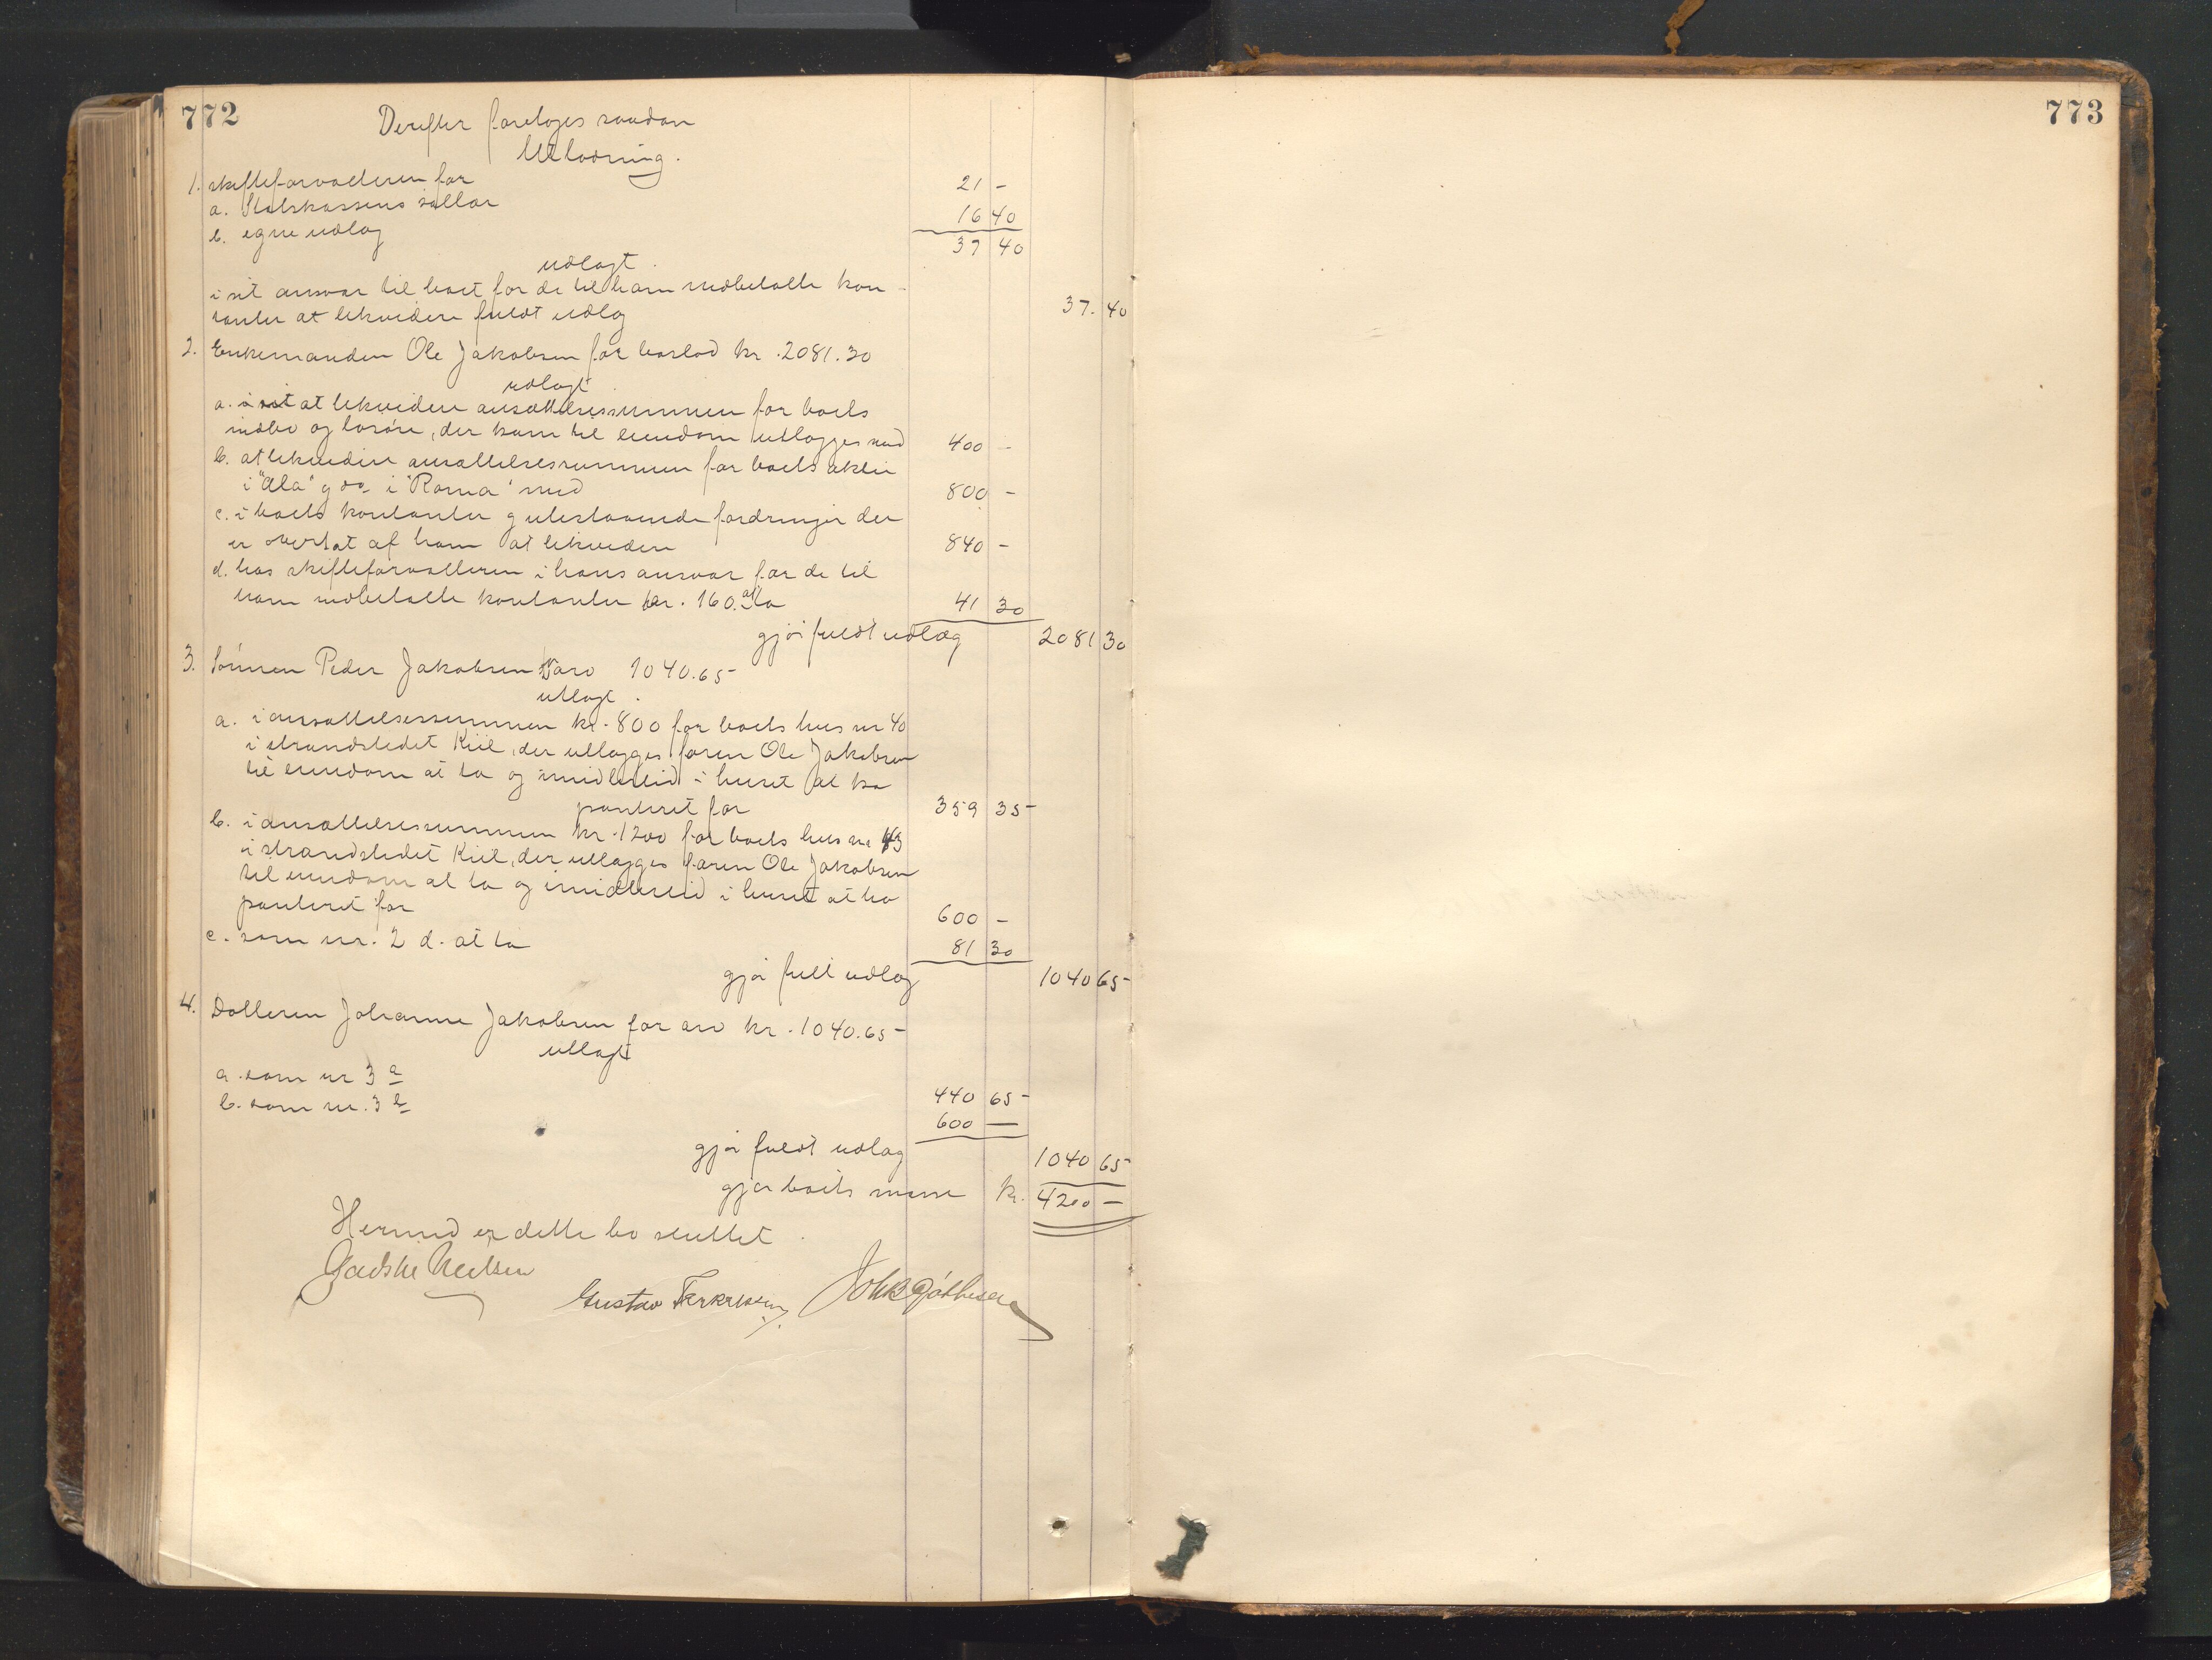 772
773
Derefter foretoges saadan
Utlodning.
1. skifteforvalteren for
a. Statskassens sallar 21 -
b. egne udlæg 16 40
37 40
udlagt.
i sit ansvar til boet for de til ham indbetalte kon-
tanter at likvidere fuldt udlæg 37. 40
2. Enkemanden Ole Jakobsen for boslod kr. 2081.30
udlagt.
a. i sit at likvidere ansættelsessummen for boets
indbo og løsøre, der ham til eiendom utlægges med 400 -
b. at likvidere ansættelsessummen for boets aktie
i "Ala" g do i "Roma" med 800 -
c. i boets kontanter g utestaaende fordringer der
er overtat af ham at likvidere 840 -
d. hos skifteforvalteren i hans ansvar for de til
ham indbetalte kontanter kr. 160. at ta 41 30
gjør fuldt udlæg 2081 30
3. Sønnen Peder Jakobsen arv 1040.65
utlagt.
a. i ansættelsessummen kr. 800 for boets hus nr 40
i strandstedet Kiil, der utlægges faren Ole Jakobsen
til eiendom at ta og imidlertid i huset at ha
panteret for 359 35
b. i ansættelsessummen kr. 1200 for boets hus nr 43
i strandstedet Kiil, der utlægges faren Ole Jakobsen
til eiendom at ta og imidlertid i huset at ha
panteret for 600 -
c. som nr. 2 d. at ta 81 30
gjør fult udlæg 1040 65
4. Datteren Johanne Jakobsen for arv kr. 1040.65
utlagt
a. som nr 3 a 440 65
b. som nr. 3 b 600 —
gjør fuldt udlæg 1040 65
gjør boets masse kr. 4200 —
Hermed er dette bo sluttet.
Gustav Terkelsen